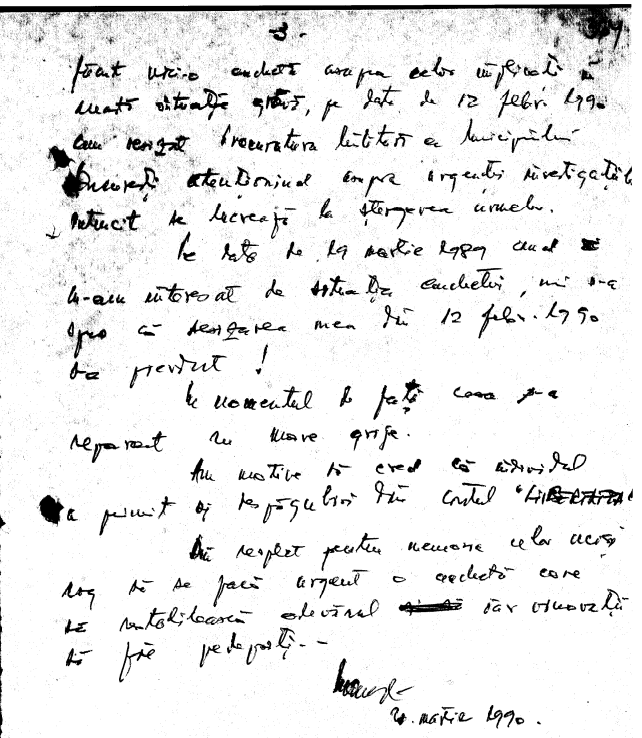 -3-
făcut nici-o anchetă asupra celor implicați în
această situație gravă, pe data de 12 febr. 1990
am sesizat Procuratura Militară a Municipiului
București atenționînd asupra urgenței investigațiilor
întrucît se lucrează la ștergerea urmelor.
Pe data de 19 martie 1989 cînd
m-am interesat de situația anchetei, mi s-a
spus că sesizarea mea din 12 febr. 1990
s-a pierdut!
În momentul de față casa s-a
reparat cu mare grije.
Am motive să cred că individul
a primit și despăgubiri din contul "LIBERTATEA
Din respect pentru memoria celor uciși
rog să se facă urgent o anchetă care
să restabilească adevărul iar vinovații
să fie pedepsiți.-
martie 1990.